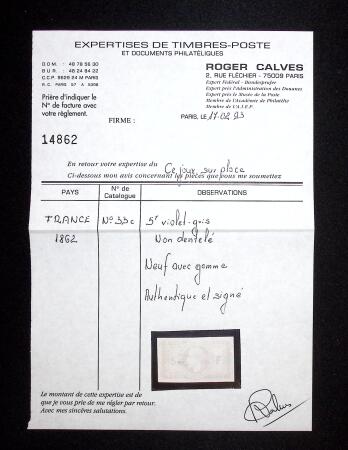 EXPERTISES DE TIMBRES-POSTE
ET DOCUMENTS PHILATÉLIQUES
DOM : 48 78 56 30
BUR : 48 24 84 22
C.C.P. 9626 24 M PARIS
R.C. PARIS 57 A 5306
ROGER CALVES
2, RUE FLÉCHIER - 75009 PARIS
Expert Fédéral - Bundesprüfer
Expert près l'Administration des Douanes
Expert près le Musée de la Poste
Membre de l'Académie de Philatélie
Membre de l'A.I.E.P.
Prière d'indiquer le
N° de facture avec
votre règlement.
FIRME :
PARIS, LE 17.02.93
14862
En retour votre expertise du Ce jour sur place
Ci-dessous mon avis concernant les pièces que vous me soumettez
PAYS
N° de Catalogue
OBSERVATIONS
FRANCE N° 33c 5f violet-gris
1862 Non dentelé
Neuf avec gomme
Authentique et signé
Le montant de cette expertise est de
que je vous prie de me régler par retour.
Avec mes sincères salutations.